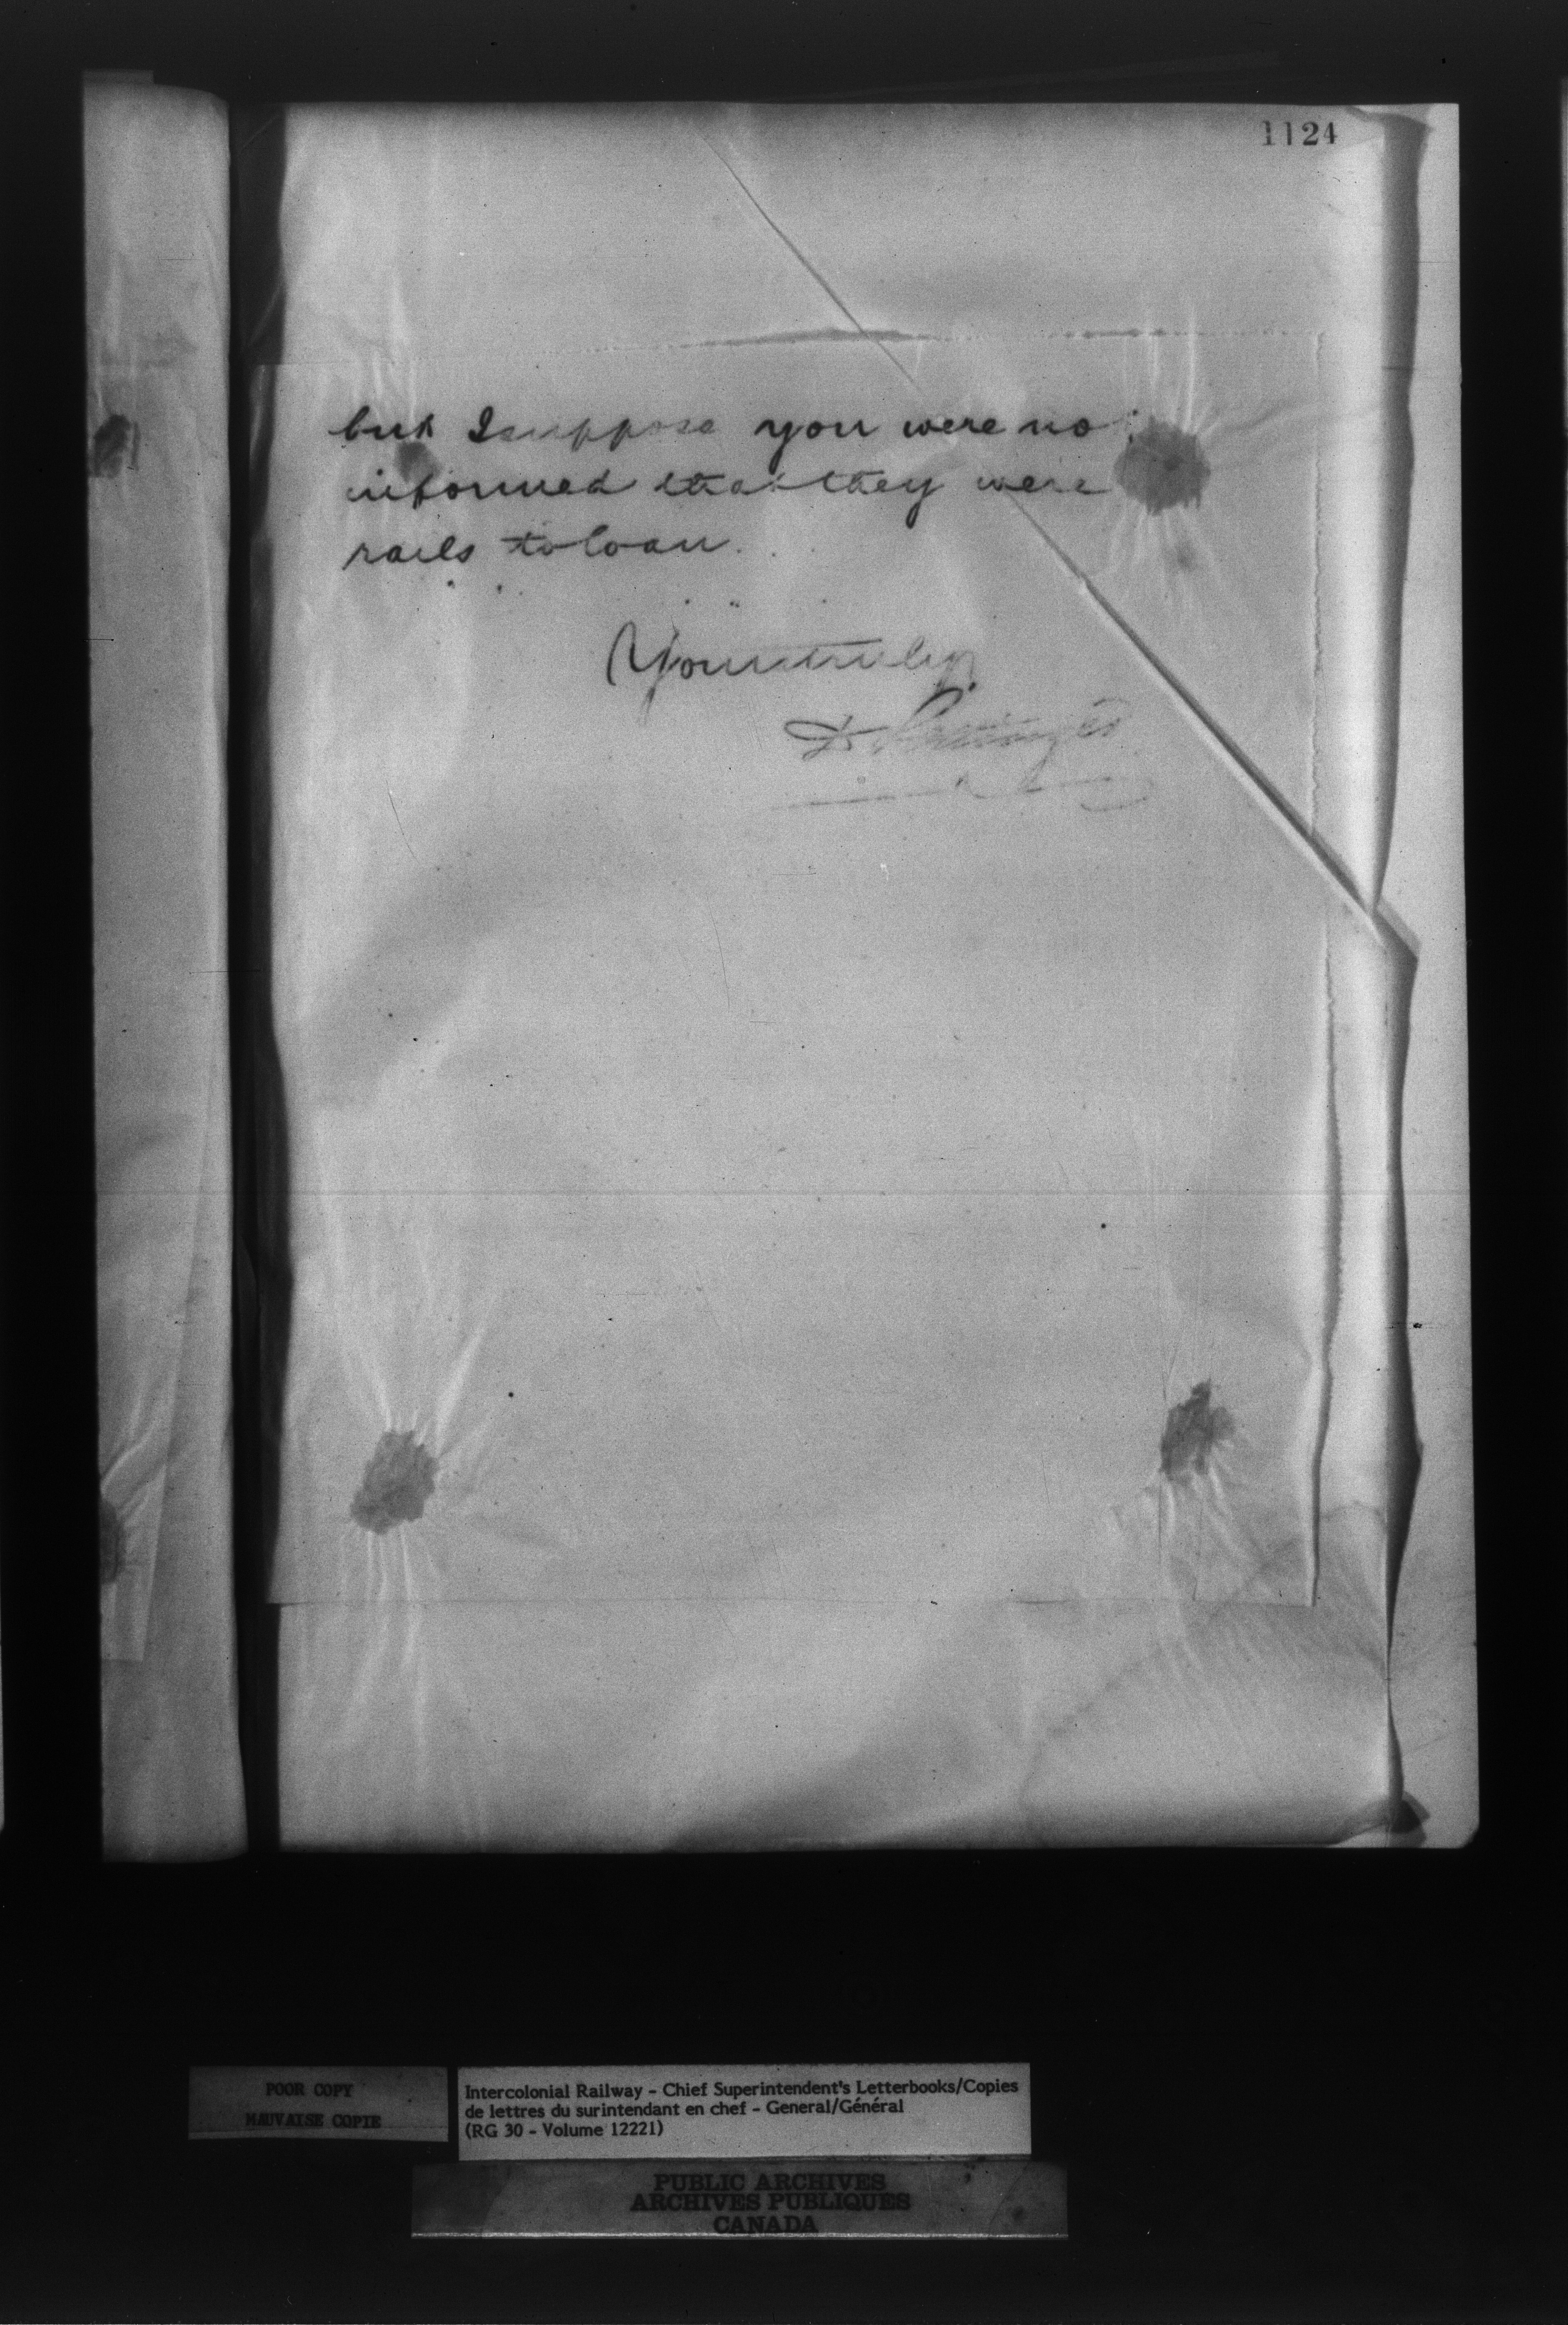 1124
but I suppose you were no
informed that they were
rails to loan.
Yours truly
D Pottinger
POOR COPY
MAUVAISE COPIE
Intercolonial Railway - Chief Superintendent's Letterbooks/Copies
de lettres du surintendant en chef - General/Général
(RG 30 - Volume 12221)
PUBLIC ARCHIVES
ARCHIVES PUBLIQUES
CANADA